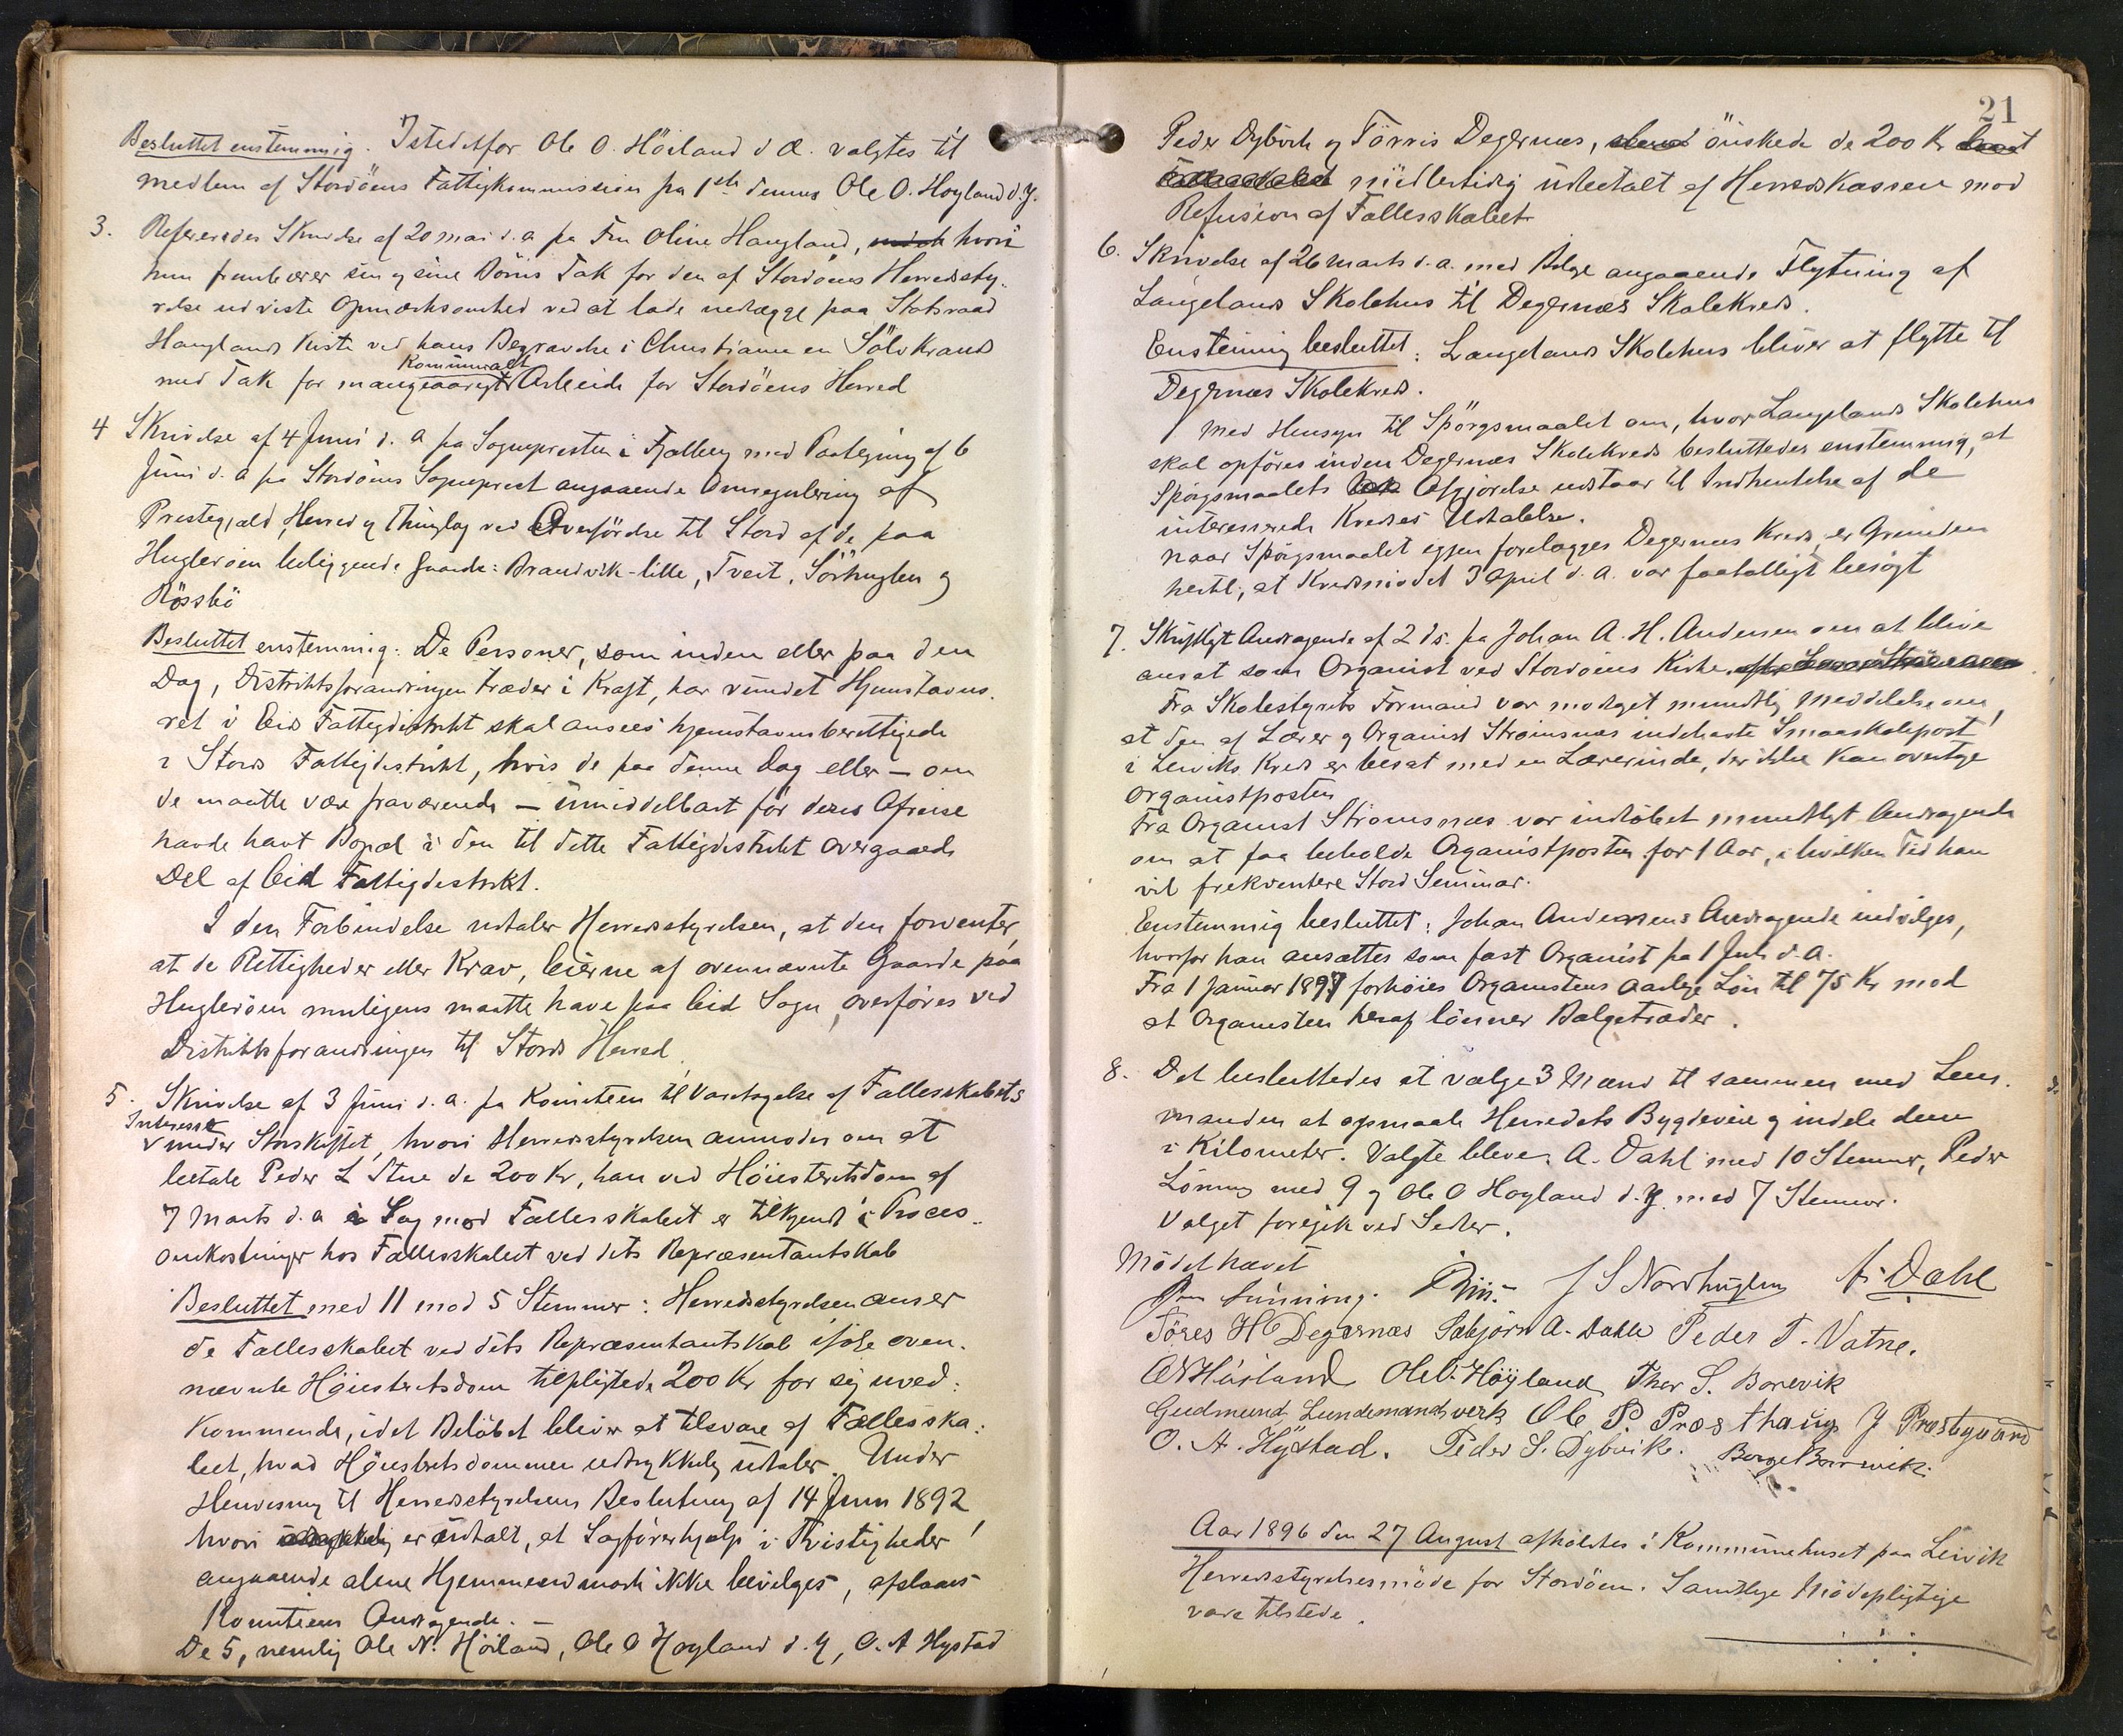 Besluttet enstemmig. Istedetfor Ole O. Höiland d Æ. valgtes til
medlem af Stordöens Fattigkommission fra 1ste dennes Ole O. Hoyland d.Y.
3. Refereredes Skrivelse af 20 mai d. a fra Fru Oline Haugland, hvori
hun frembærer sin og sine Börns Tak for den af Stordöens Herredssty-
relse udviste Opmærksomhed ved at lade nedlægge paa Statsraad
Hauglands Kiste ved hans Begravelse i Christiania en Sölvkrands
Kommunalt
med Tak for mangeaarigt Arbeide for Stordöens Herred
4 Skrivelse af 4 Juni d. a fra Sognepresten i Fjelberg med Paategning af 6
Juni d. a fra Stordöens Sogneprest angaaende Omregulering af
Prestegjæld, Herred og Thinglag ved Overförelse til Stord af de paa
Huglerøen beliggende Gaarde: Brandvik-lille, Tveit, Sörhuglen og
Rössbö
Besluttet enstemmig: De Personer, som inden eller paa den
Dag, Distriktsforandringen træder i Kraft, har vundet Hjemstavns-
ret i Eids Fattigdistrikt skal ansees hjemstavnsberettigede
i Stords Fattigdistrikt, hvis de paa denne Dag eller – om
de maatte være fraværende – umiddelbart för deres Afreise
havde havt Bopæl i den til dette Fattigdistrikt overgaaede
Del af Eid Fattigdistrikt.
I den Forbindelse udtaler Herredsstyrelsen, at den forventer,
at de Rettigheder eller Krav, Eierne af ovennævnte Gaarde paa
Hugleröen muligens maatte have paa Eid Sogn, overföres ved
Distriktsforandringen til Stords Herred.
5. Skrivelse af 3 Juni d. a. fra Komiteen til Varetagelse af Fællesskabets
Interesse
under Storskiftet, hvori Herredsstyrelsen anmodes om at
betale Peder L Stue de 200 Kr, han ved Höiesteretsdom af
7 Marts d. a i Sag mod Fællesskabet er tilkjendt i Proces-
omkostninger hos Fællesskabet ved dets Repræsentantskab
Besluttet med 11 mod 5 Stemmer: Herredsstyrelsen anser
de Fællesskabet ved dets Repræsentantskab ifölge oven-
nævnte Höiesteretsdom tilpligtede 200 Kr for sig uved-
kommende, idet Belöbet bliver at tilsvare af Fællesska-
bet, hvad Höiesteretsdommen udtrykkelig udtaler. Under
Henvisning til Herredsstyrelsens Beslutning af 14 Juni 1892,
hvori er udtalt, at Sagförerhjælp i Tvistigheder
angaaende alene Hjemmeudmark ikke bevilges, afslaaes
Komiteens Andragende. –
De 5, nemlig Ole N. Höiland, Ole O Hoyland d. Y, O. A Hystad
21
Peder Dybvik og Törris Degernes, önskede de 200 Kr
midlertidig udbetalt af Herredskassen mod
Refusion af Fællesskabet
6. Skrivelse af 26 Marts d. a. med Bilag angaaende Flytning af
Langelands Skolehus til Degernæs Skolekreds.
Enstemmig besluttet: Langelands Skolehus bliver at flytte til
Degernæs Skolekreds.
Med Hensyn til Spörgsmaalet om, hvor Langelands Skolehus
skal opföres inden Degernæs Skolekreds besluttedes enstemmig, at
Spörgsmaalets Afgjörelse udstaar til Indhentelse af de
interesserede Kredses Udtalelse.
Naar Spörgsmaalet igjen forelægges Degernæs Kreds, er Grunden
hertil, at Kredsmödet 3 April d. a. var faatalligt besögt
7. Skriftligt Andragende af 2 ds. fra Johan A. H. Andersen om at blive
ansat som Organist ved Stordöens Kirke.
Fra Skolestyrets Formand var modtaget mundtlig Meddelelse om,
at den af Lærer og Organist Strömsnæs indehavte Smaaskolepost
i Lerviks Kreds er besat med en Lærerinde, der ikke kan overtage
Organistposten
Fra Organist Strömsnæs var indlöbet mundtligt Andragende
om at faa beholde Organistposten for 1 Aar, i hvilken Tid han
vil frekventere Stord Seminar.
Enstemmig besluttet: Johan Andersens Andragende indvilges,
hvorfor han ansættes som fast Organist fra 1 Juli d. a.
Fra 1 Januar 1897 forhöies Organistens aarlige Lön til 75 Kr mod
at Organisten heraf lönner Bælgetræder.
8. Det besluttedes at vælge 3 Mænd til sammen med Lens-
manden at opmaale Herredets Bygdeveie og inddele dem
i Kilometer. Valgte bleve: A. Dahl med 10 Stemmer, Peder
Lönning med 9 og Ole O Hoyland d. Y. med 7 Stemmer.
Valget foregik ved Sedler.
Mödet hævet
Lönning. J S Nordhuglen A. Dahl
Töres H Degernæs Sæbjörn A. Dahle Peder T. Vatne.
O N Höiland Ole O. Höyland Thor S. Borevik
Gudmund Lundemandsverk Ole P. Præsthaug J Præstegaard
O. A. Hystad. Peder S. Dybvik. Borge Borrevik
Aar 1896 den 27 August afholdtes i Kommunehuset paa Leirvik
Herredsstyrelsesmöde for Stordöen. Samtlige Mödepligtige
vare tilstede.